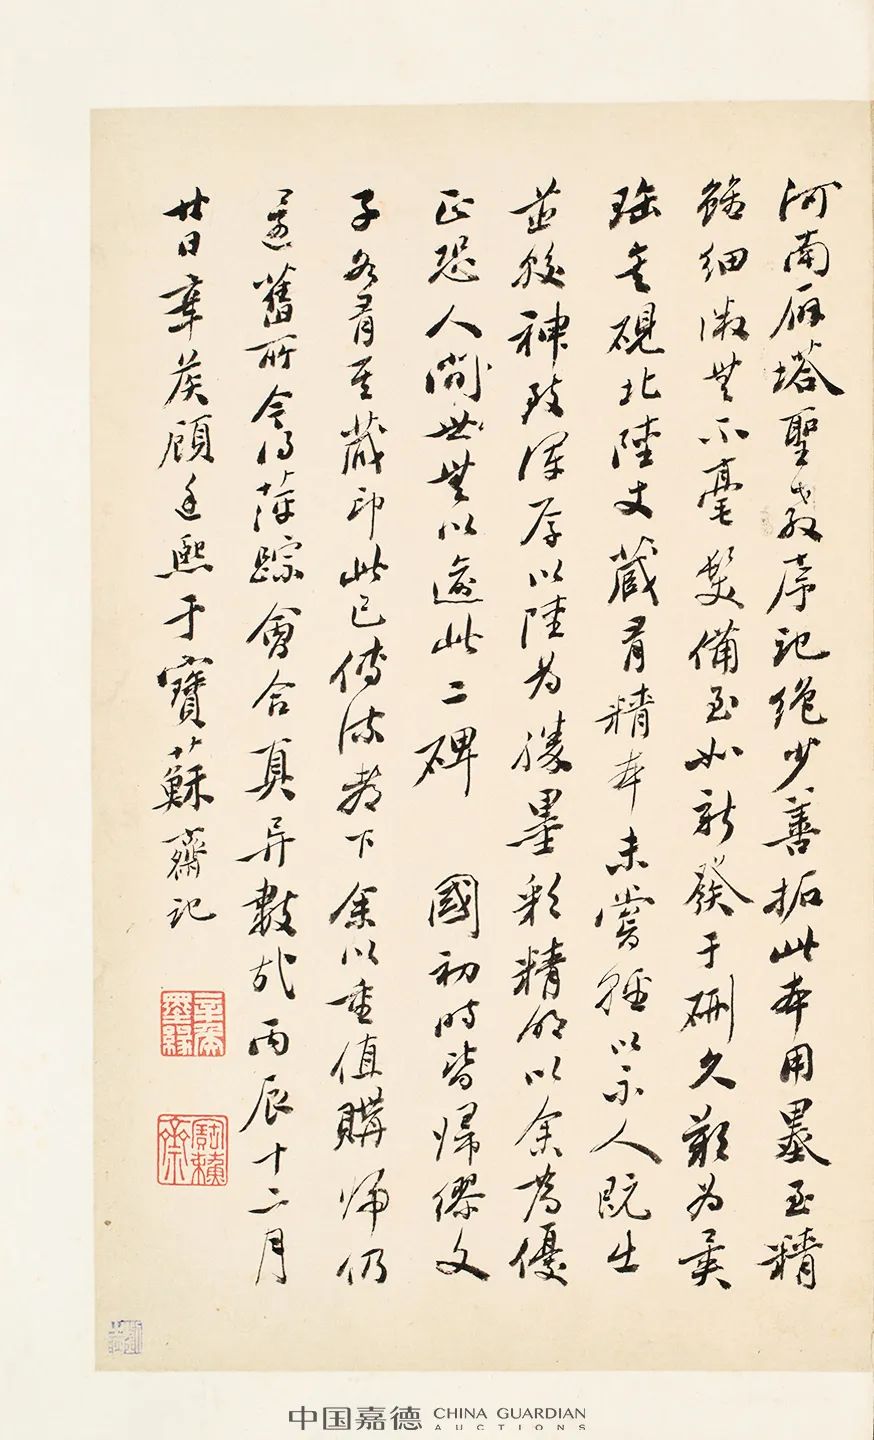 河南雁塔聖教序記絶少善拓此本用墨至精
雖細微無不毫髮備至如新發于硎久歎為異
珤矣硯北陸丈藏有精本未嘗輕以示人既出
並較神致渾厚以陸為勝墨彩精明以余為優
正恐人間世無以逾此二碑 國初時皆歸繆文
子各有其藏印此已傳流都下余以重值購歸仍
還舊所今得萍踪會合真异數哉丙辰十二月
廿日葦
顧廷熙于寶蘇齋記
寶蘇齋
中国嘉德 CHINA GUARDIAN
AUCTIONS